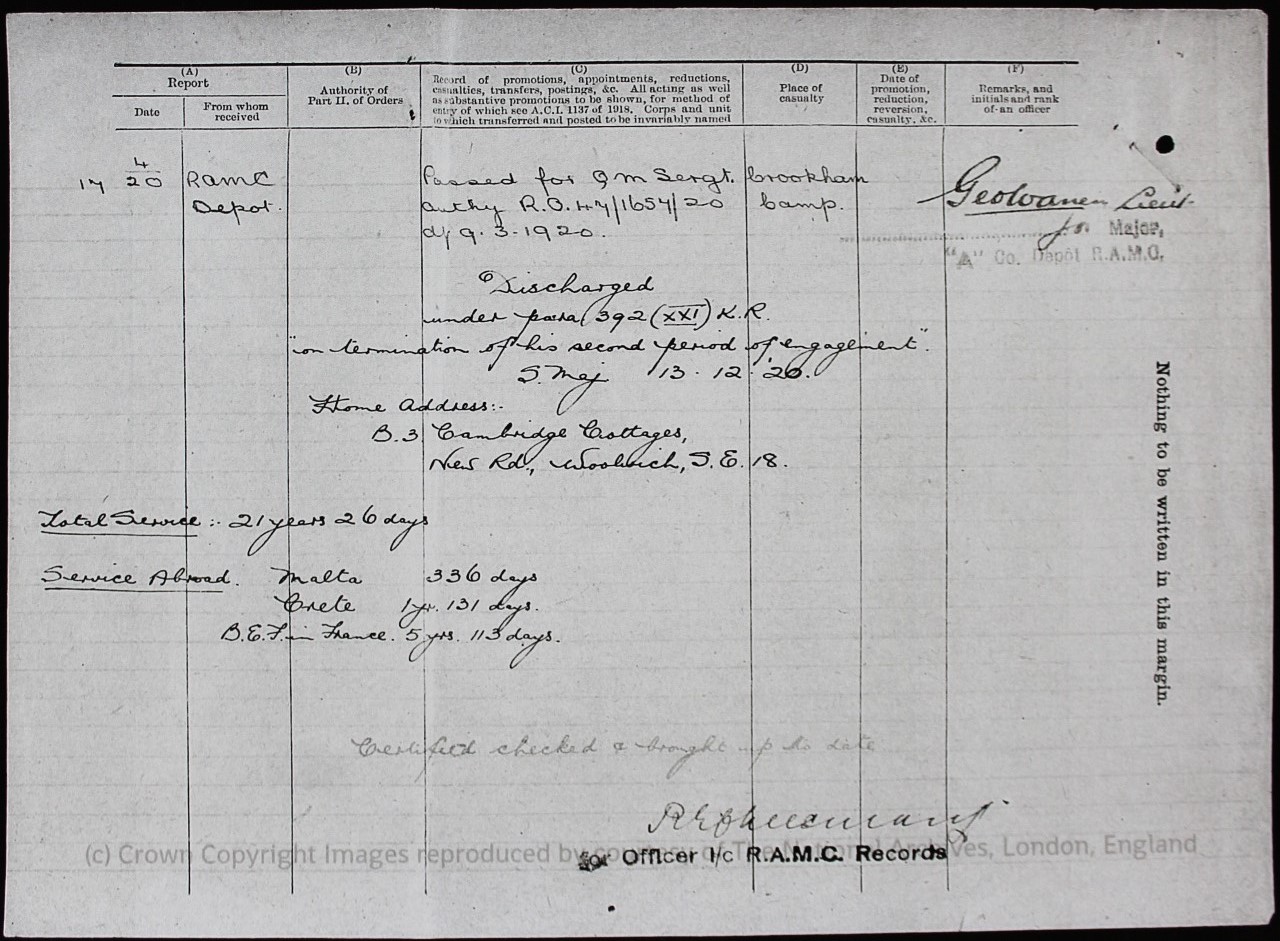 (A)
Report
Date
From whom
received
(B)
Authority of
Part II, of Orders
(C)
Record of promotions, appointments, reductions,
casualties, transfers, postings, &c. All acting as well
as substantive promotions to be shown, for method of
entry of which see A.C.I. 1137 of 1918. Corps and unit
to which transferred and posted to be invariably named
(D)
Place of
casualty
(E)
Date of
promotion,
reduction,
reversion,
casualty, &c.
(F)
Remarks, and
initials and rank
of an officer
17 4/20 RAMC Passed for Q M Sergt. Crookham
Depot. Authy R.O. 47/1654/20 Camp.
d/ 9.3.1920.
Lieut
for Major,
"A" Co. Depôt R.A.M.C.
Discharged
under para 392 (XXI) K.R.
"on termination of his second period of engagement".
S. Maj 13.12.20.
Home Address:-
B.3 Cambridge Cottages,
New Rd., Woolwich, S.E. 18.
Total Service :- 21 years 26 days
Service Abroad. Malta 336 days
Crete 1 yr. 131 days.
B.E.F. in France. 5 yrs. 113 days.
Certified checked & brought up to date
for Officer I/c R.A.M.C. Records
(c) Crown Copyright Images reproduced by courtesy of The National Archives, London, England
Nothing to be written in this margin.